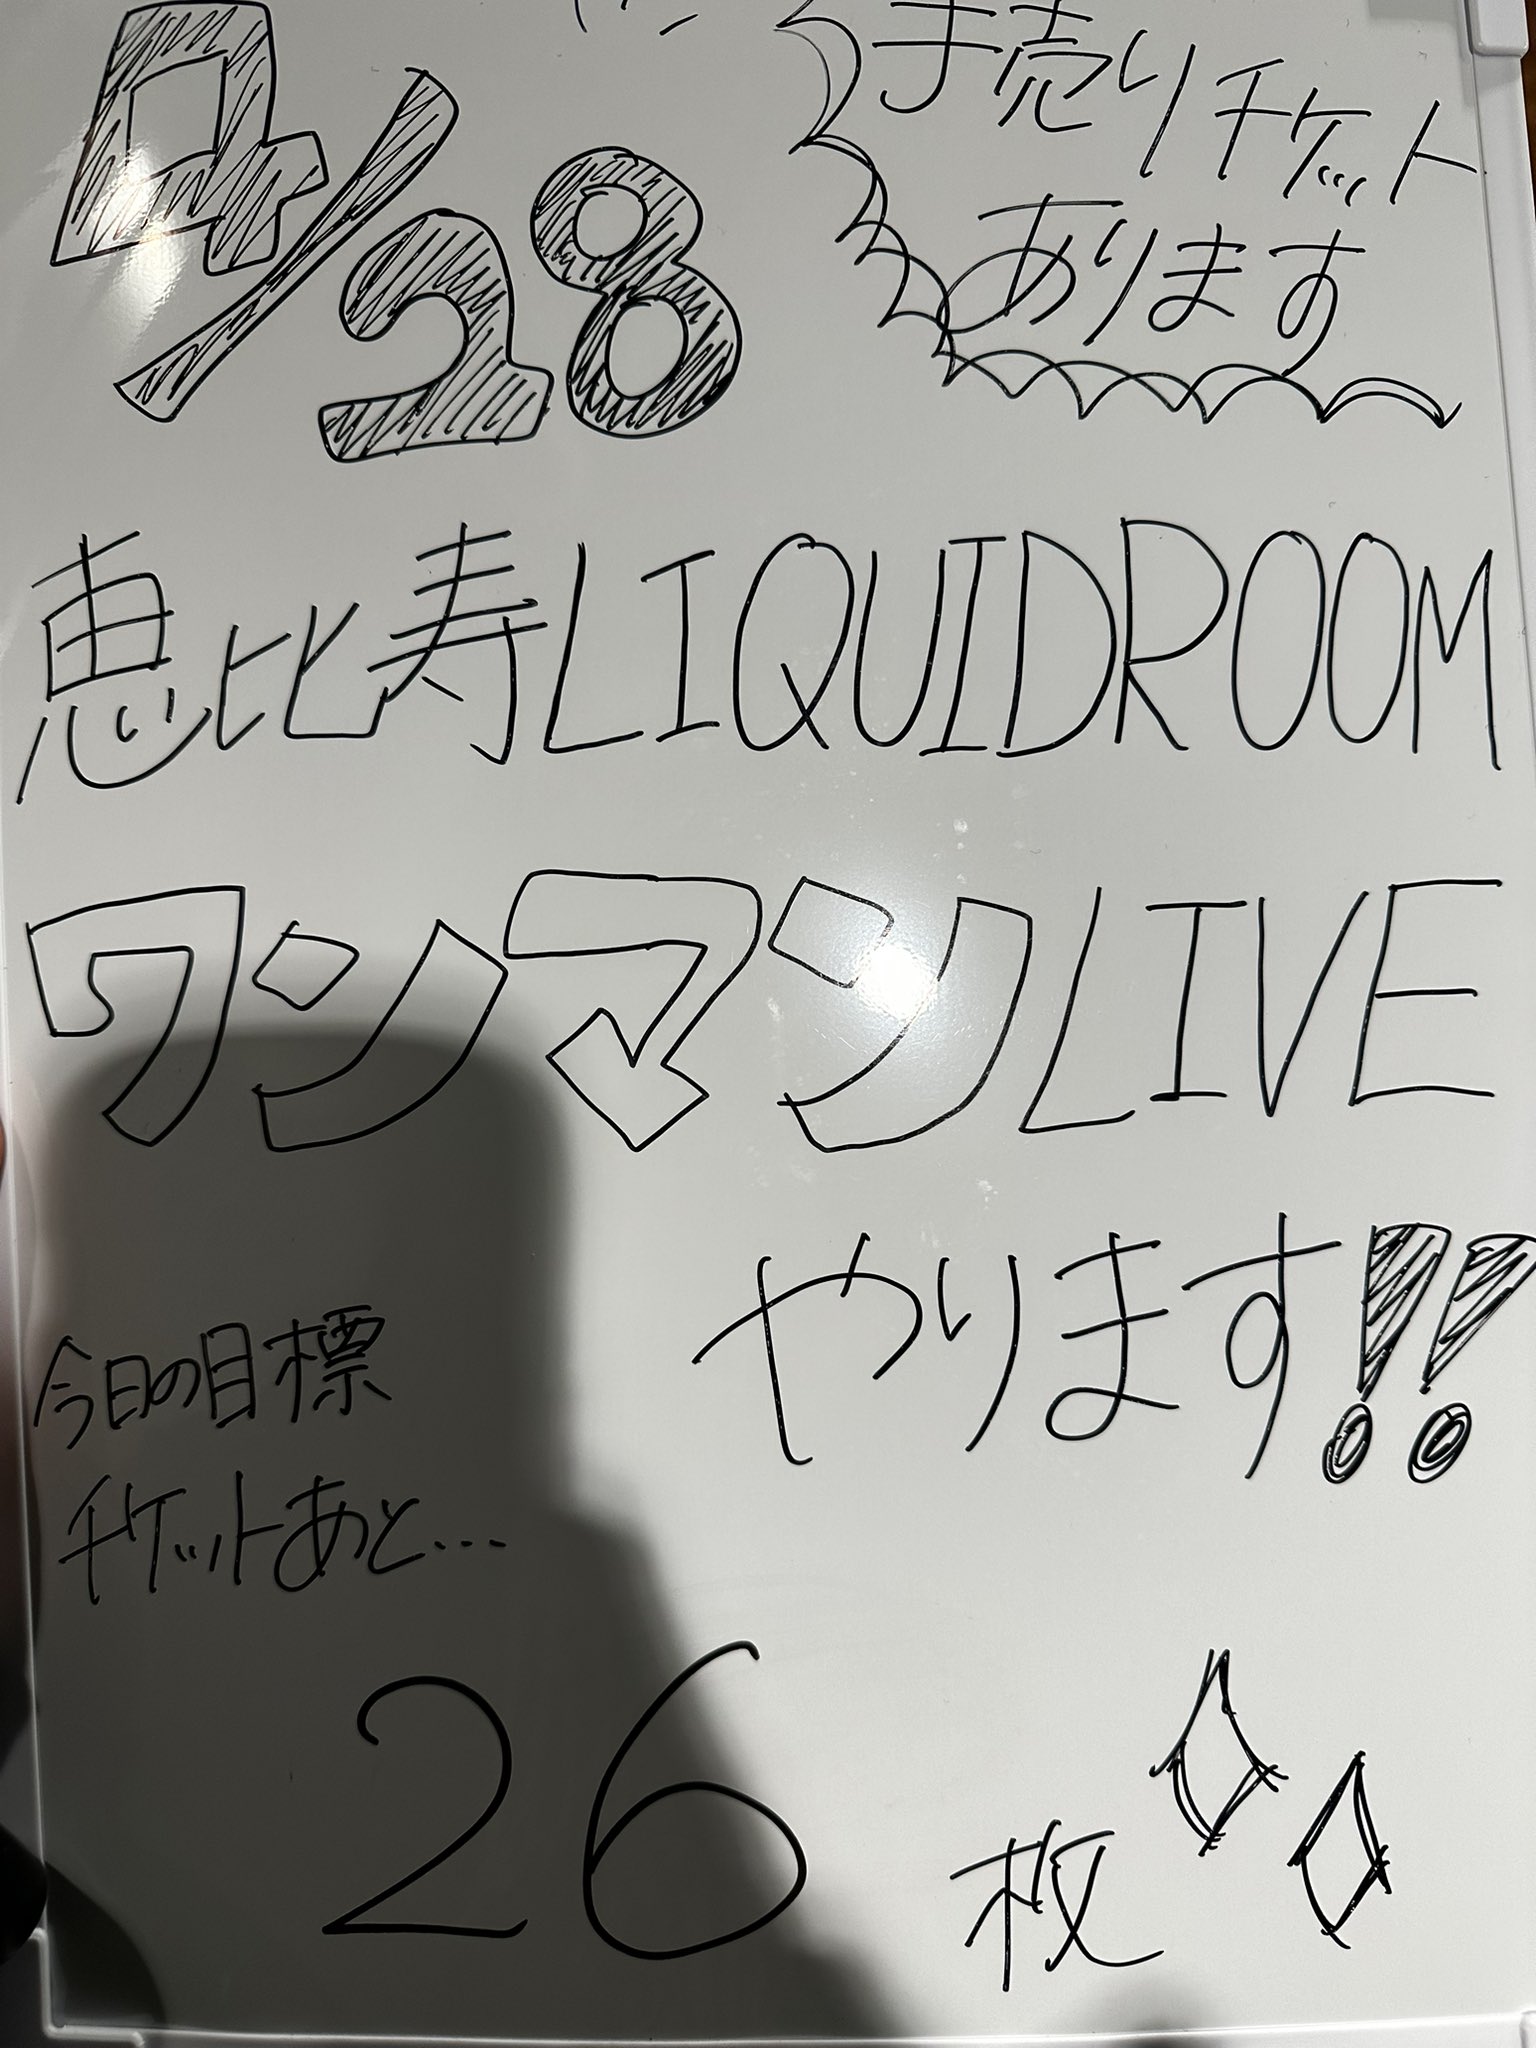 4/28
手売りチケット
あります
恵比寿LIQUIDROOM
ワンマンLIVE
やります!!
今日の目標
チケットあと...
26枚